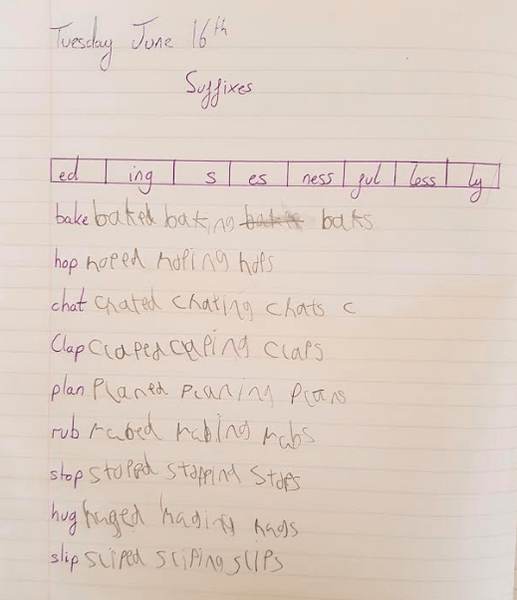 Tuesday June 16th
Suffixes
ed ing s es ness ful less ly
bake baked baking baks
hop hoped hoping hops
chat chated chating chats c
Clap claped claping claps
plan planed planing plans
rub rubed rubing rubs
stop stoped stopping stops
hug huged huging hugs
slip sliped sliping slips